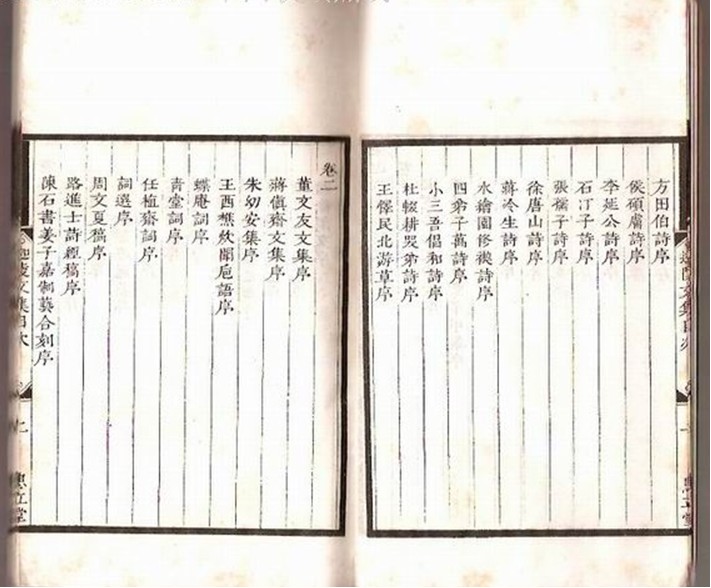 方田伯詩序
侯碩膚詩序
李延公詩序
石汀子詩序
張孺子詩序
徐唐山詩序
蔣冷生詩序
水繪園修禊詩序
四弟子萬詩序
小三吾倡和詩序
杜輟耕哭弟詩序
王鐸民北游草序
卷二
董文友文集序
蔣愼齋文集序
朱幼安集序
王西樵炊聞巵語序
蝶庵詞序
青堂詞序
任植齋詞序
詞選序
周文夏稿序
路進士詩經稿序
陳石書姜子嘉制蓺合刻序